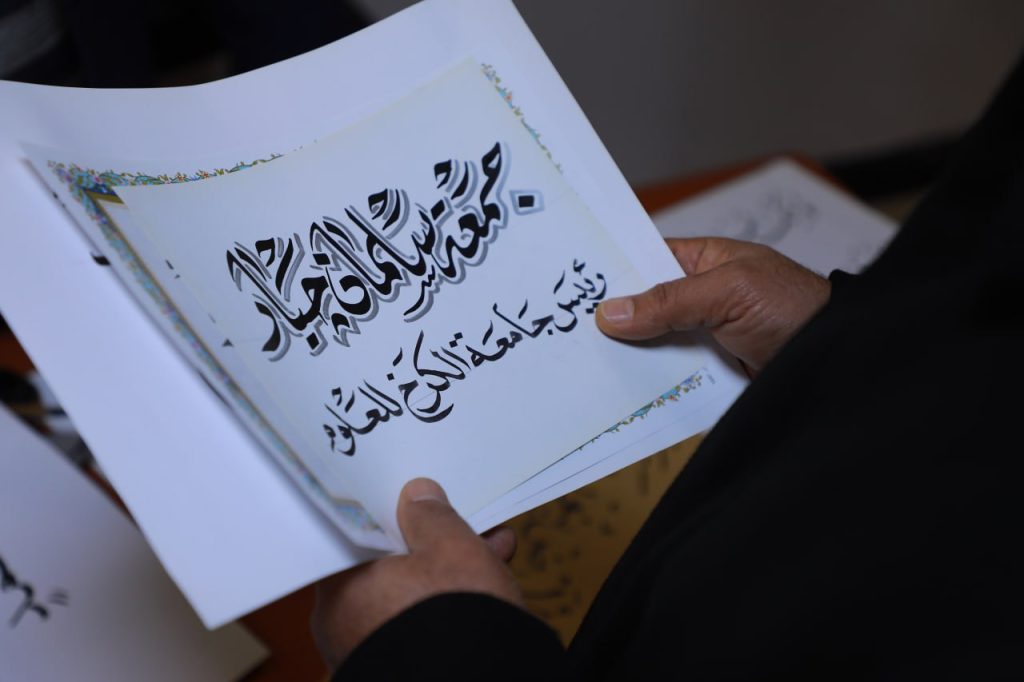 جمعة سلمان جياد
رئيس جامعة الكرخ للعلوم